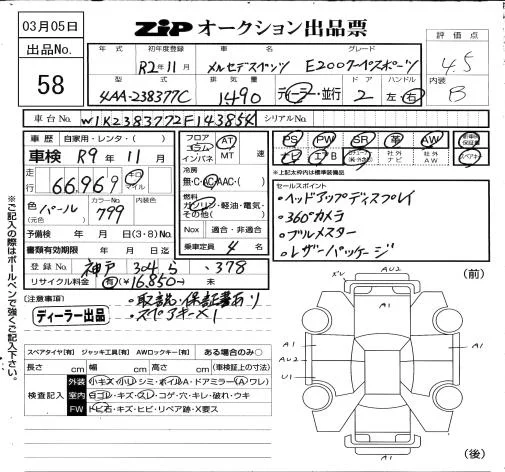 03月05日
ZIP オークション出品票
出品No.
58
年式 初年度登録 車名 グレード
R2年11月 メルセデスベンツ E200クーペスポーツ
評価点
4.5
内装
B
型式 排気量 ドア ハンドル
4AA-238377C 1490 ディーラー・並行 2 左・右
車台No. W1K2383772F143854 シリアルNo.
車歴 自家用・レンタ・( )
車検 R9年11月
走行 66,969 キロ マイル
色 (元色) パール カラーNo. 799 内装色
予備検 年 月 日(3・8)No.
書類有効期限 年 月 日迄
登録No. 神戸 304 ら ・378
リサイクル料金 有(¥16,850-) 未
フロア コラム インパネ AT MT 速
冷房
無・C・AC・AAC・( )
燃料
ガソリン・軽油・電気・その他( )
Nox 適合・非適合
乗車定員 4 名
PS PW SR 革 AW
ナビ エアB 社外ナビ 社外AW
新車時保証書
スペアキー
※上記太枠内は標準装備品
セールスポイント
・ヘッドアップディスプレイ
・360°カメラ
・ブルメスター
・レザーパッケージ
(注意事項) ・取説・保証書あり
ディーラー出品 ・スペアキー×1
※ご記入の際はボールペンで強くご記入下さい。
スペアタイヤ[有] ジャッキ工具[有] AWロックキー[有] ある場合のみ○
長さ cm 幅 cm 高さ cm (車検証上の寸法)
検査記入
外装 小キズ・小凹・シミ・ボイルA・ドアミラー(A・ワレ)
室内 ヨゴレ・キズ・スレ・コゲ・穴・キレ・破れ・ウキ
FW トビ石・キズ・ヒビ・リペア跡・X要ス
(前)
AU2
A1
A1
AU2
U1
A1
A1
AU2
(後)